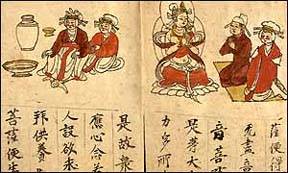 薩便得
无盡意
音菩薩
是等大
力多所
是故衆
應心念
人設欲求
拜供養
菩薩便生